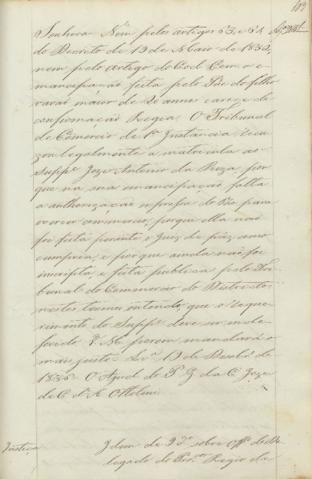 103
Senhora Nem pelos artigos 53, e 54
do Decreto de 13 de Maio de 1832,
nem pelo artigo do Cod. Com. o e-
mancipação feita pelo Pae do filho
varão maior de 20 annos carece de
confirmação Regia. O Tribunal
de Comercio de 1ª Instancia recu-
zou legalmente a matricula ao
Suppe Joze Antonio da Roza, por
que na sua emancipação falta
a authorização expressa do Pae para
exercer comercio, porque ella não
foi feita perante o Juiz de paz como
cumpria, e porque ainda não foi
inscripta, e feita publica pelo Tri-
bunal do Commercio do Districto.
nestes termos intendo, que o reque-
rimento do Suppe deve ser inde-
ferido. V. M. porem mandará o
mais justo. Lxª 19 de
1835. O Ajud. do P. G. da C. Joze
de C. A. Ottolini
Justiça
Idem de 23 sobre Offº do De-
legado do Proc. Regio da